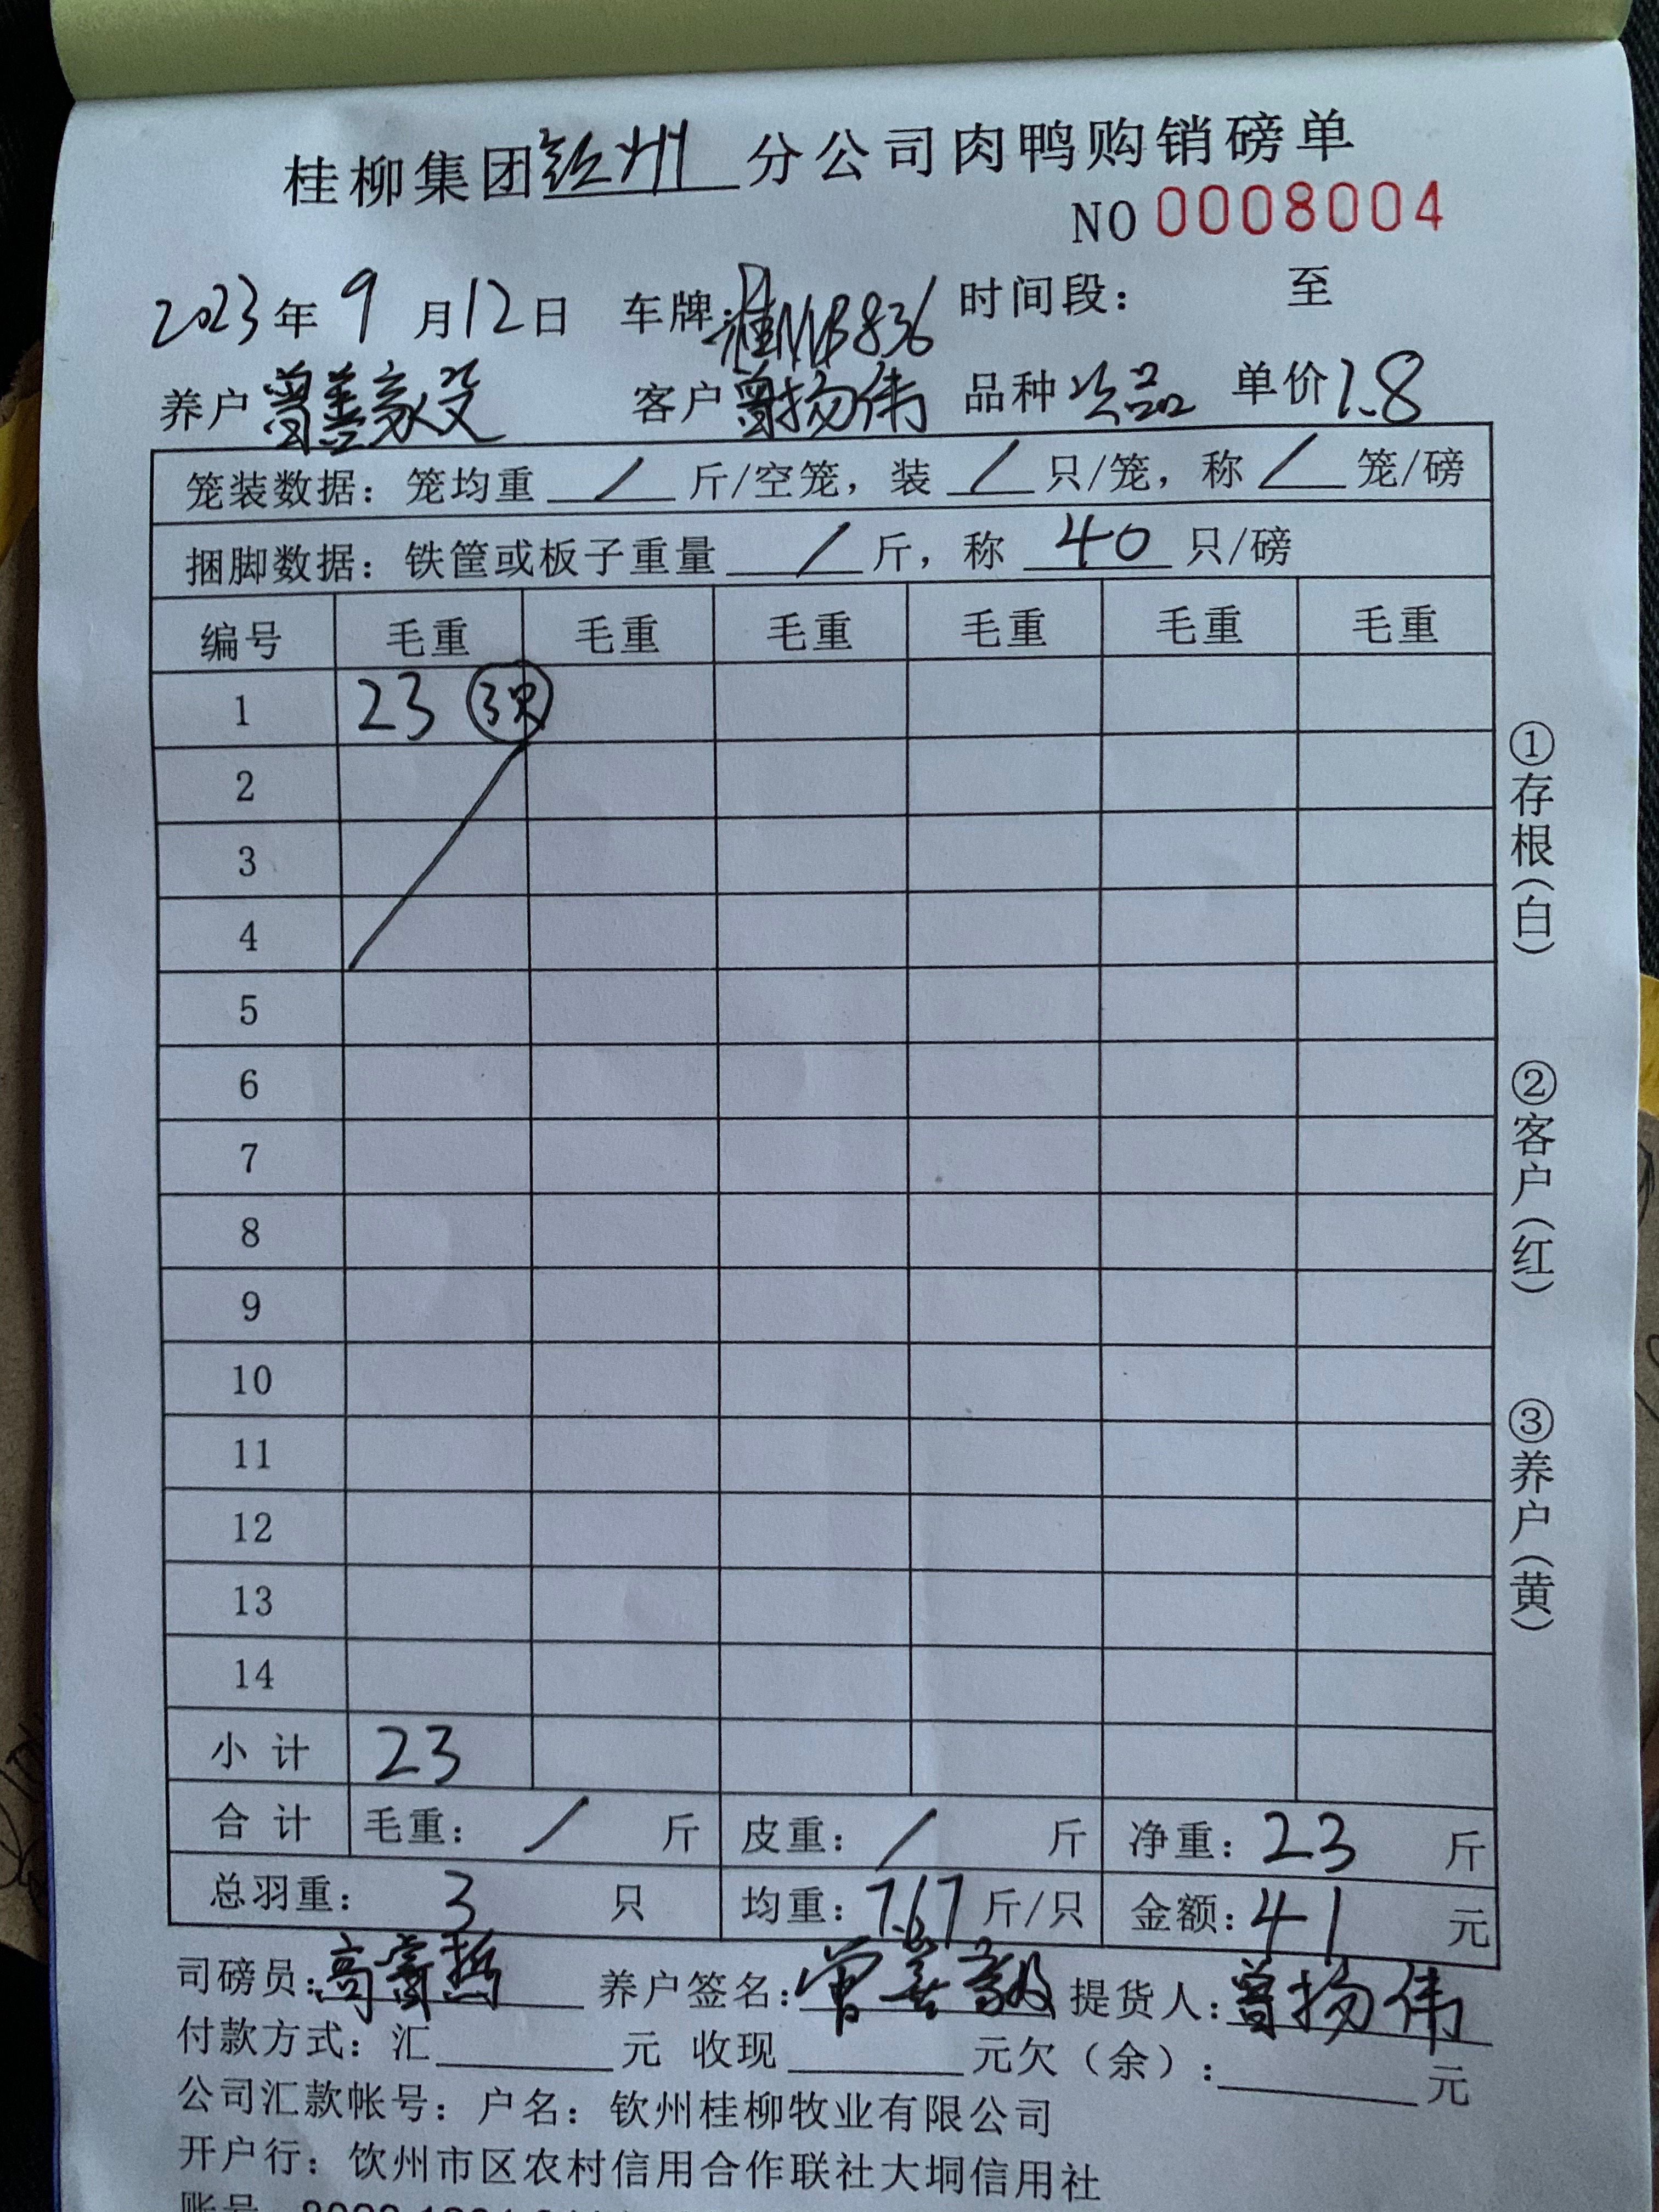 桂柳集团钦州分公司肉鸭购销磅单
NO 0008004
2023年 9 月12日 车牌:桂NB836 时间段： 至
养户 曾善毅 客户 曾扬伟 品种 次品 单价 1.8
笼装数据：笼均重 / 斤/空笼，装 / 只/笼，称 / 笼/磅
捆脚数据：铁筐或板子重量 / 斤，称 40 只/磅
编号 毛重 毛重 毛重 毛重 毛重 毛重
1 23 3只
2
3
4
5
6
7
8
9
10
11
12
13
14
小 计 23
合 计 毛重： / 斤 皮重： / 斤 净重：23 斤
总羽重： 3 只 均重：7.67 斤/只 金额：41 元
司磅员： 养户签名：曾善毅 提货人：曾扬伟
付款方式：汇 元 收现 元欠（余）： 元
公司汇款帐号：户名：钦州桂柳牧业有限公司
开户行：钦州市区农村信用合作联社大垌信用社
①存根（白）
②客户（红）
③养户（黄）